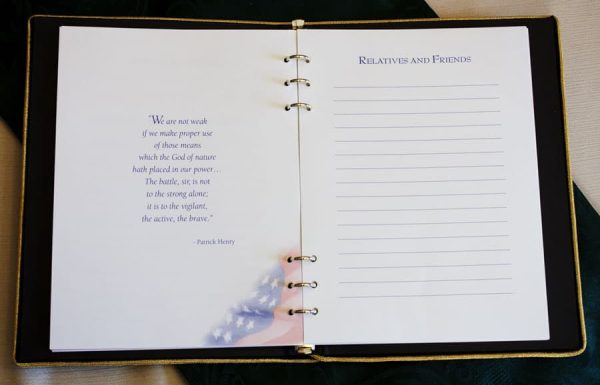 "We are not weak
if we make proper use
of those means
which the God of nature
hath placed in our power...
The battle, sir, is not
to the strong alone;
it is to the vigilant,
the active, the brave."
- Patrick Henry
RELATIVES AND FRIENDS